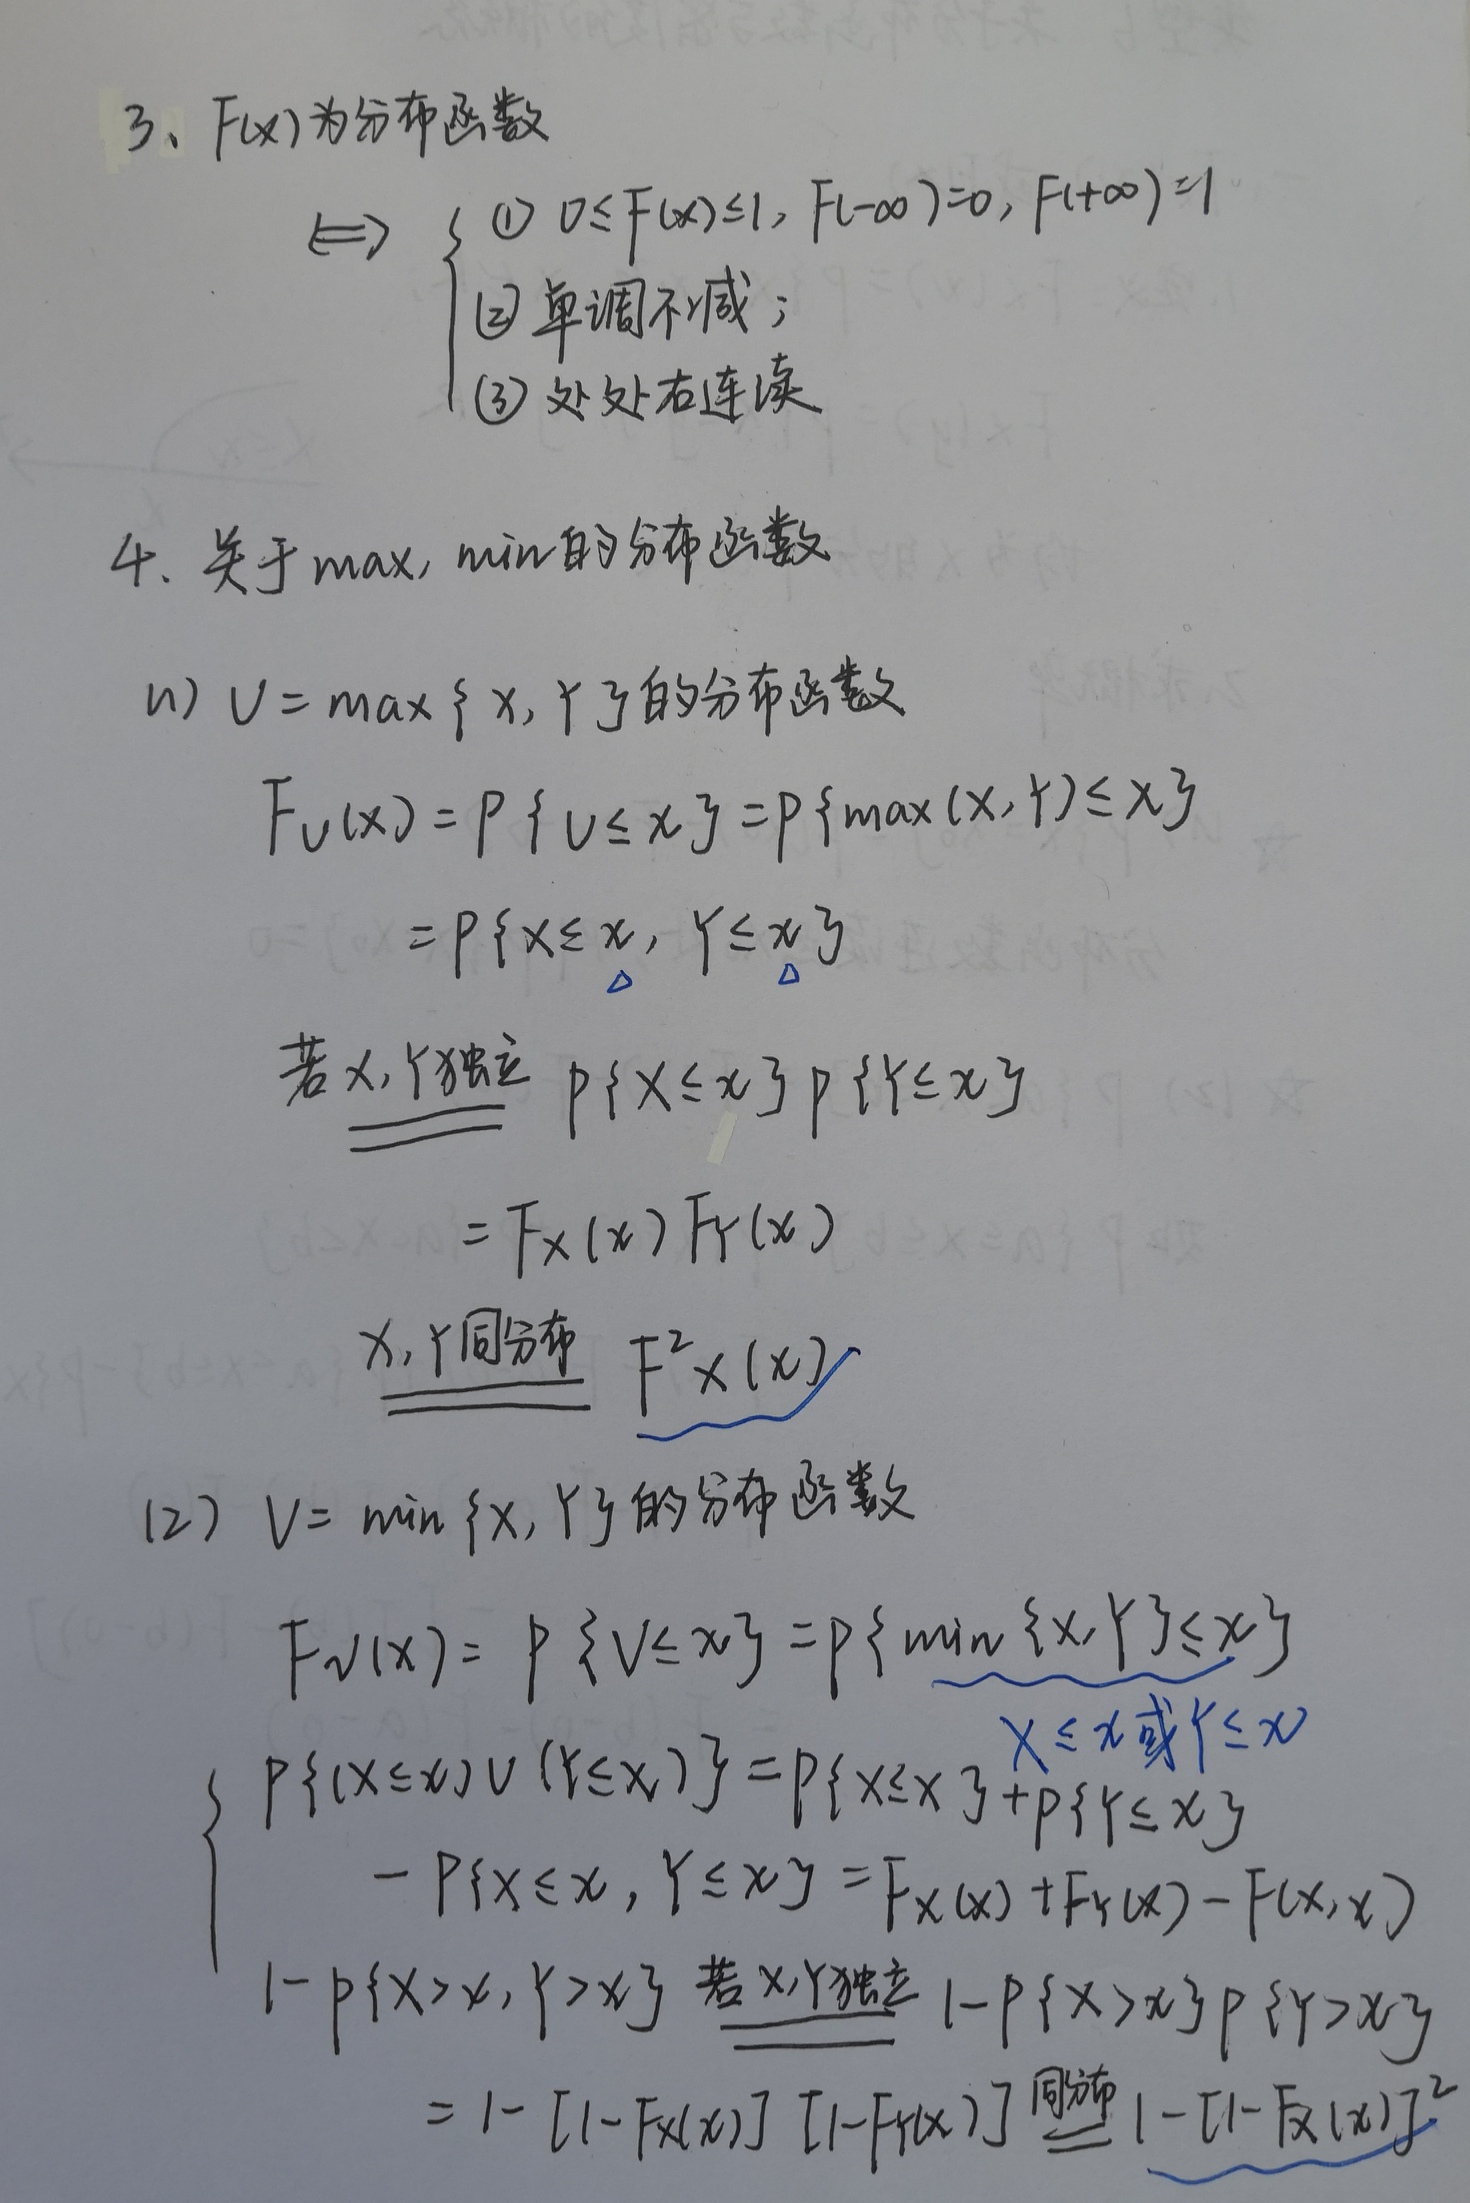 3、F(x)为分布函数
⟺ { ① 0≤F(x)≤1, F(-∞)=0, F(+∞)=1
② 单调不减;
③ 处处右连续
4、关于max, min的分布函数
(1) U = max{X, Y}的分布函数
F_U(x) = P{U≤x} = P{max(X,Y)≤x}
= P{X≤x, Y≤x}
若X,Y独立 P{X≤x}P{Y≤x}
= F_X(x) F_Y(x)
X,Y同分布 F²_X(x)
(2) V = min{X,Y}的分布函数
F_V(x) = P{V≤x} = P{min{X,Y}≤x}
X≤x或Y≤x
P{(X≤x)∪(Y≤x)} = P{X≤x}+P{Y≤x}
- P{X≤x, Y≤x} = F_X(x)+F_Y(x)-F(x,x)
1-P{X>x, Y>x} 若X,Y独立 1-P{X>x}P{Y>x}
= 1-[1-F_X(x)][1-F_Y(x)] 同分布 1-[1-F_X(x)]²